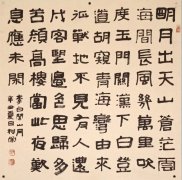 明月出天山蒼茫雲
海間長風幾萬里吹
度玉門關漢下白登
道胡窺青海灣由來
征戰地不見有人還
戍客望邊色思歸多
苦顏高樓當此夜歎
息應未閒
李白關山月